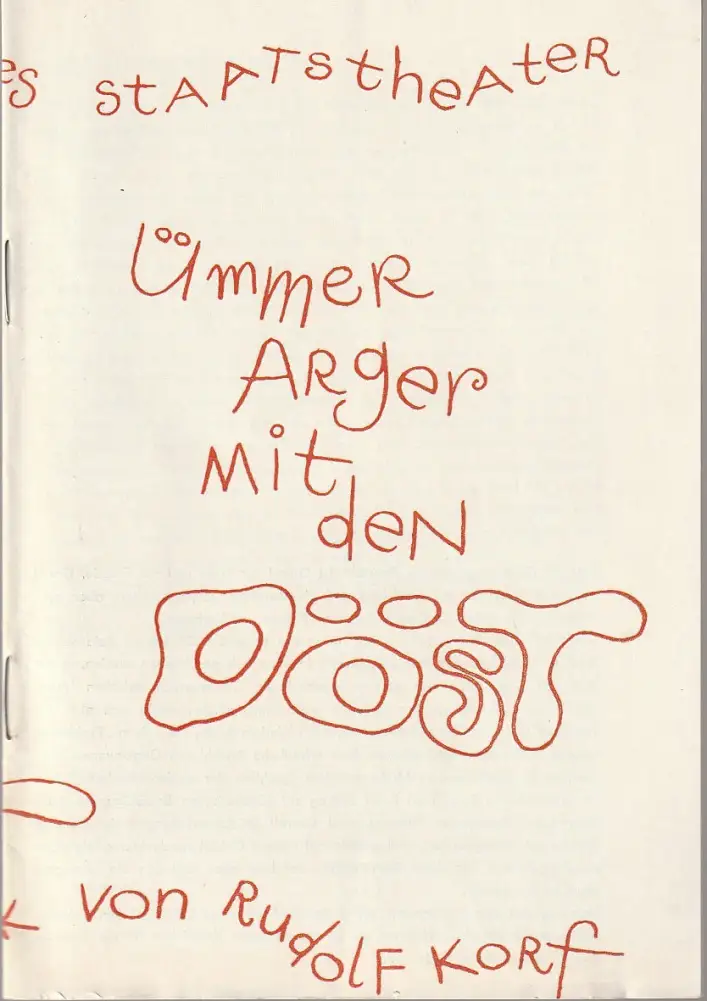 es StAATstheAteR
ÜmmeR
ARger
Mit
deN
DÖST
von RudolF KORf